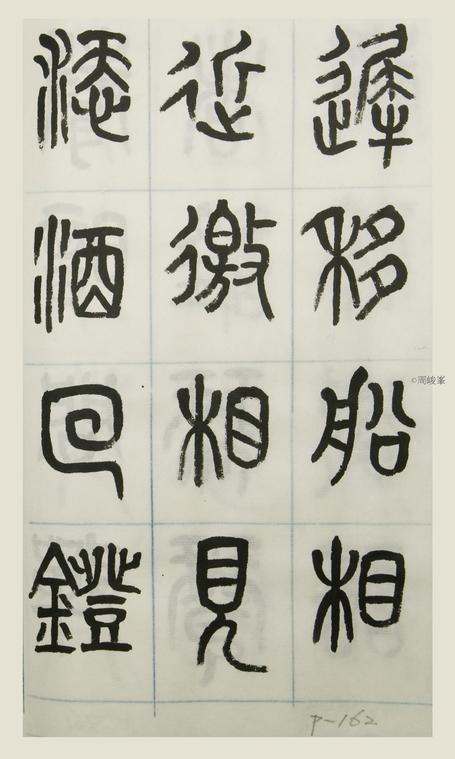 遲移船相
近徼相見
添酒回鐙
P-162
©周峻峯